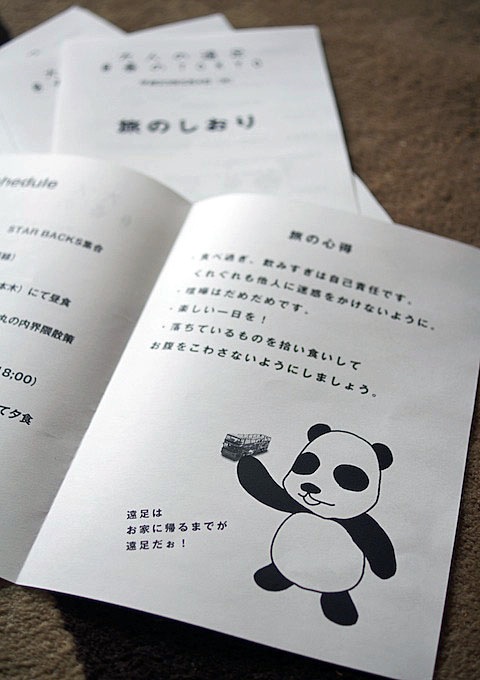 大人の遠足
旅のしおり
hedule
STAR BACKS集合
本木）にて昼食
丸の内界隈散策
8;00）
て夕食
旅の心得
・食べ過ぎ、飲みすぎは自己責任です。
くれぐれも他人に迷惑をかけないように。
・喧嘩はだめだめです。
・楽しい一日を！
・落ちているものを拾い食いして
お腹をこわさないようにしましょう。
遠足は
お家に帰るまでが
遠足だぉ！